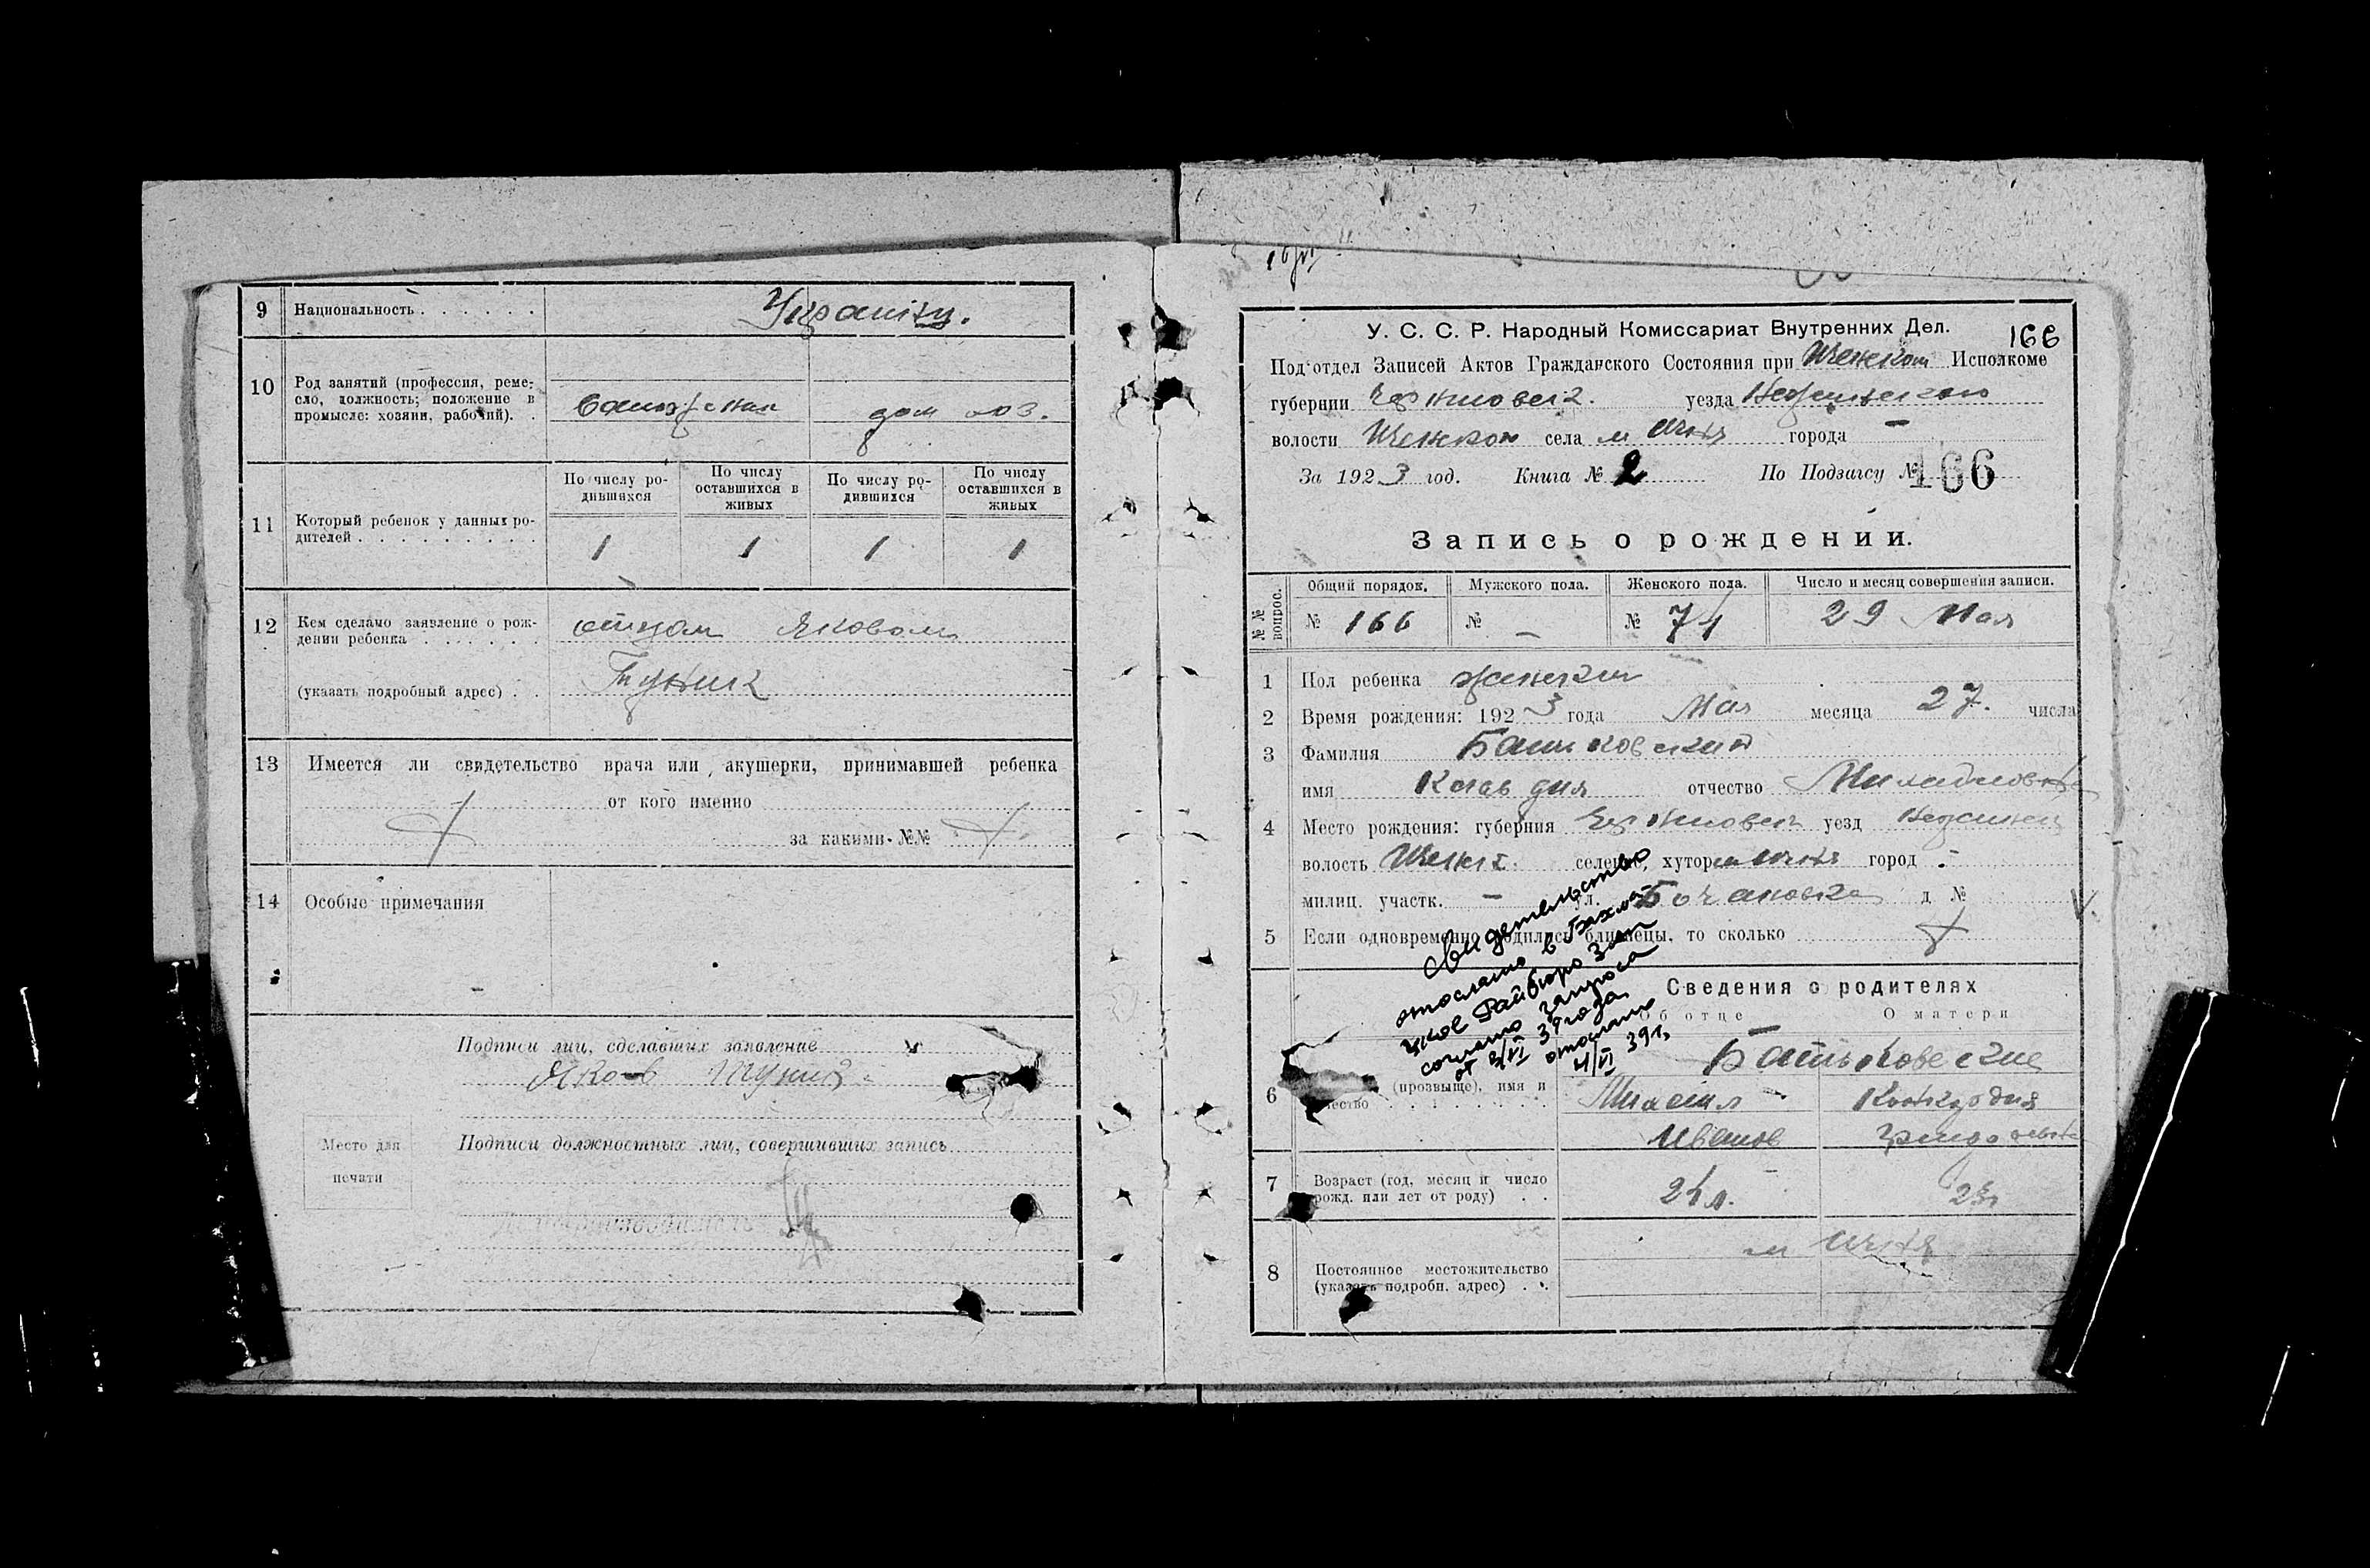 9 Национальность . . . . . . Украінц.
10 Род занятий (профессия, реме-
сло, должность; положение в
промысле: хозяин, рабочий). . дом хоз.
11 Который ребенок у данных ро-
дителей . . . . . . . . . .
По числу ро-
дившихся
По числу
оставшихся в
живых
По числу ро-
дившихся
По числу
оставшихся в
живых
1 1 1 1
12 Кем сделано заявление о рож-
дении ребенка . . . . . . . отцом Яковом
(указать подробный адрес) . .
13 Имеется ли свидетельство врача или акушерки, принимавшей ребенка
от кого именно
за какими №№
14 Особые примечания
Подписи лиц, сделавших заявление
Яков
Место для
печати
Подписи должностных лиц, совершивших запись
У. С. С. Р. Народный Комиссариат Внутренних Дел. 166
Подотдел Записей Актов Гражданского Состояния при Иченском Исполкоме
губернии Черниговск. уезда Неженского
волости Иченской села м Ичня города —
За 1923 год. Книга № 2 По Подзагсу № 166
Запись о рождении.
№ № вопрос.
Общий порядок. Мужского пола. Женского пола. Число и месяц совершения записи.
№ 166 № — № 74 29 Мая
1 Пол ребенка женский
2 Время рождения: 1923 года Мая месяца 27. числа
3 Фамилия Батьковский
имя Клавдия отчество Михайловна
4 Место рождения: губерния Черниговск уезд Неженск
волость Иченск. селение, хутор м Ичня город -
милиц. участк. — ул. Бочановка д №
5 Если одновременно родились близнецы, то сколько
Свидетельство
отослано в Бахма-
цкое Райбюро Загс
согласно запроса
от 2/VI 39 года
отослано
4/VI 39 г.
Сведения о родителях
Об отце О матери
Батьковские
6 (прозвище), имя и
чество . . . . . . . .
Михаил
Иванов
7 Возраст (год, месяц и число
рожд. или лет от роду) . . 24 л. 23л
8 Постоянное местожительство
(указать подробн. адрес) . . м Ичня